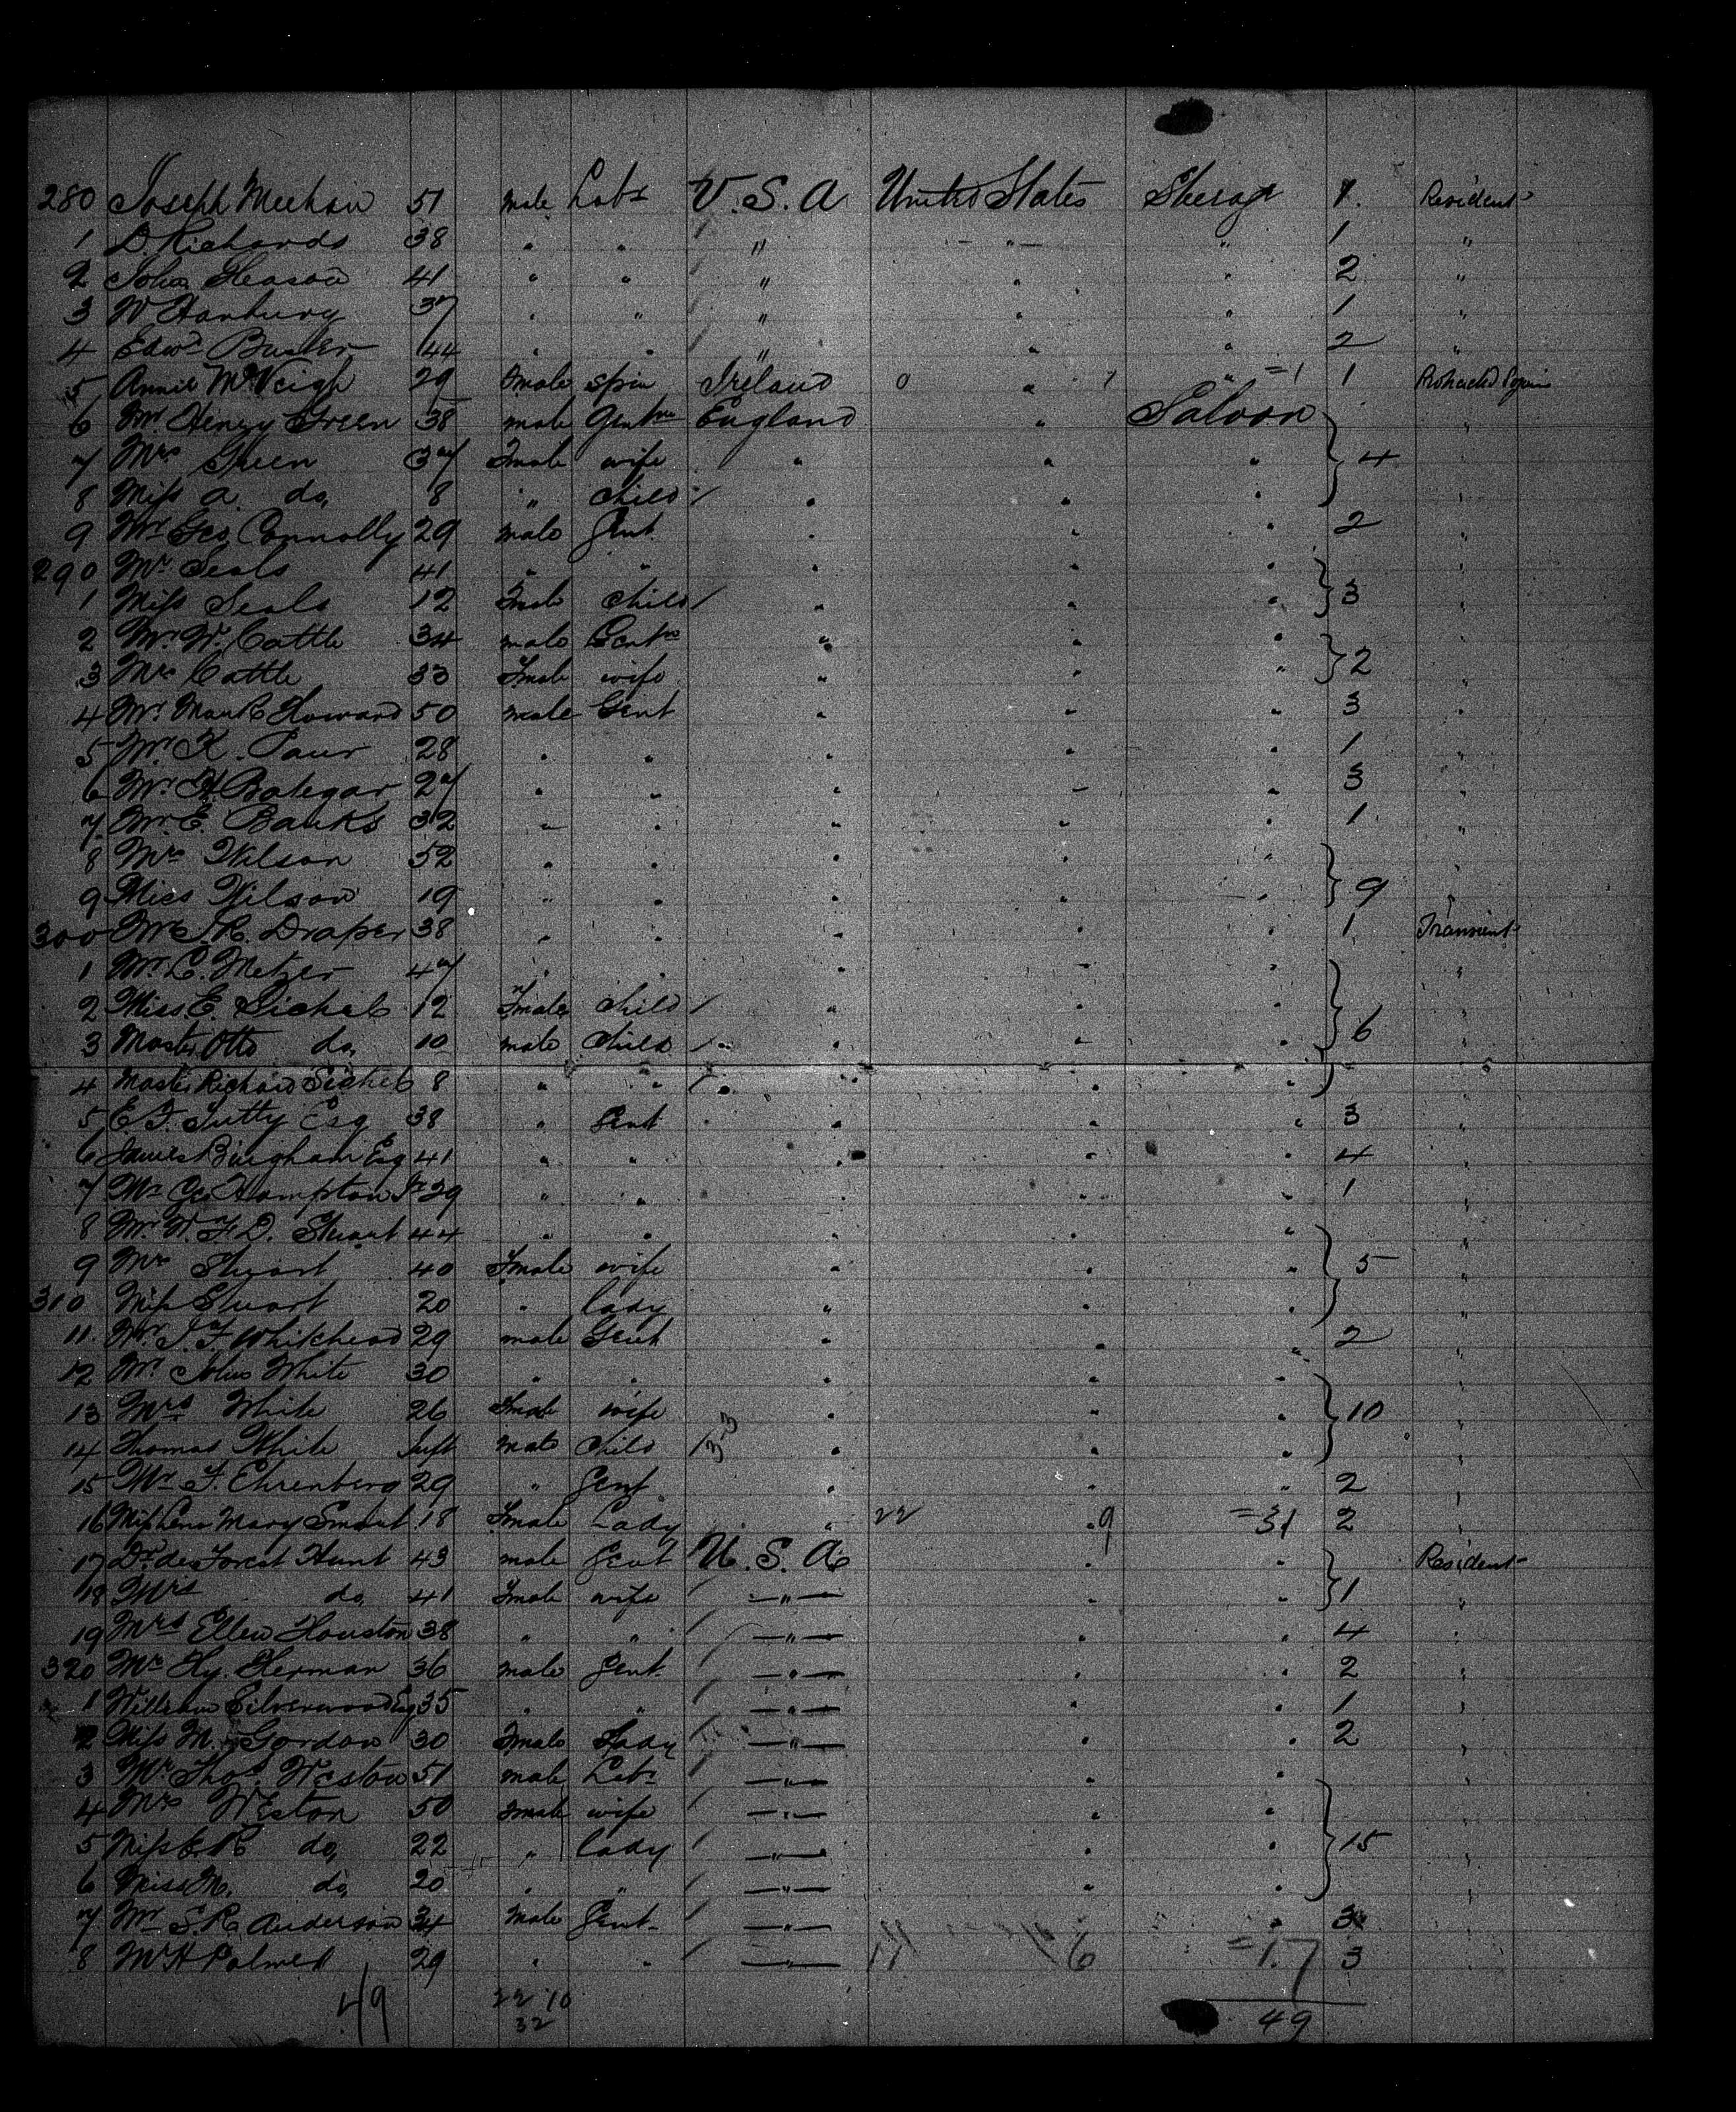 280 Joseph Meehan 51 male Labr U.S.A United States Steerage 1. Resident
1 D. Richards 38 " " " " " 1 "
2 John Gleason 41 " " " " " 2 "
3 W Hanbury 37 " " " " " 1 "
4 Edwd 44 " " " " " 2 "
5 Annie McVeigh 29 Fmale spin Ireland 0 " 1 " =1 1 Protracted
6 Mr Henry Green 38 male Gentn England " Saloon "
7 Mrs Green 37 Fmale wife " " " 4 "
8 Miss A do, 8 " child / " " " "
9 Mr Geo Connolly 29 male Gent " " " 2 "
290 Mr Seals 41 " " " " " "
1 Miss Seals 12 Fmale child / " " " 3 "
2 Mr W. Cattle 34 male Gentn " " " "
3 Mrs Cattle 33 Fmale wife " " " 2 "
4 Mr Howard 50 male Gent " " " 3 "
5 Mr K. 28 " " " " " 1 "
6 Mr H 27 " " " " " 3 "
7 Mr E. Banks 32 " " " " " 1 "
8 Mrs Wilson 52 " " " " " "
9 Miss Wilson 19 " " " " " 9 "
300 Mr Draper 38 " " " " " 1 Transient
1 Mr L. Metzer 47 " " " " " "
2 Miss E. Sichel 12 Fmale child / " " " "
3 Master Otto do, 10 male child / " " " 6 "
4 Master Richard Sichel 8 " " / " " " "
5 E. F. Tutty Esq 38 " Gent " " " 3 "
6 James Bingham Esq 41 " " " " " 4 "
7 Mr Geo Hampton Jr 29 " " " " " 1 "
8 Mr W. F. D. Stuart 44 " " " " " "
9 Mrs Stuart 40 Fmale wife " " " 5 "
310 Miss Stuart 20 " lady " " " "
11. Mr J. F. Whitehead 29 male Gent " " " 2 "
12 Mr John White 30 " " " " " "
13 Mrs White 26 Fmale wife " " " 10 "
14 Thomas White Inft male child / 3-3 " " " "
15 Mr F. Ehrenberg 29 " Gent " " " 2 "
16 Miss Mary Smart 18 Fmale Lady " 22 " 9 =31 2 "
17 Dr de Forest Hunt 43 male Gent U.S.A. " " Resident
18 Mrs do, 41 Fmale wife / " " " 1 "
19 Mrs Ellen Houston 38 " " / " " " 4 "
320 Mr Hy. Herman 36 male Gent / " " " 2 "
1 William Silverwood Esq 35 " " / " " " 1 "
2 Miss M. Gordon 30 Fmale Lady / " " " 2 "
3 Mr Thos. Weston 51 male Labr / " " " "
4 Mrs Weston 50 Fmale wife / " " " "
5 Miss E. R do, 22 " lady / " " " 15 "
6 Miss M. do, 20 " " / " " " "
7 Mr S. R. Anderson 34 male Gent / " " " 3 "
8 Mr H Palmer 29 " " / " 11 6 =17 3
49 22 10
32 49